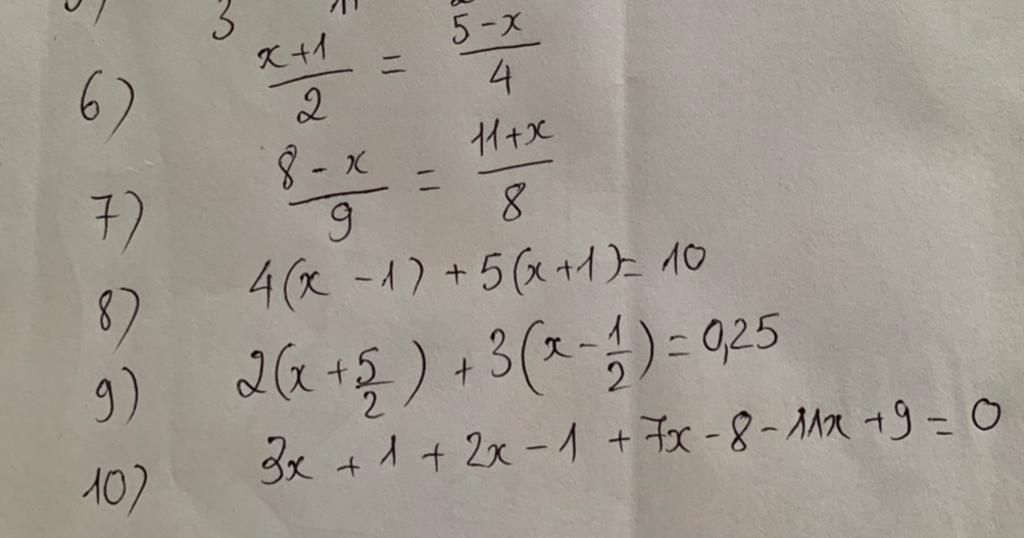 3
6) (x+1)/2 = (5-x)/4
7) (8-x)/9 = (11+x)/8
8) 4(x-1)+5(x+1)=10
9) 2(x+5/2)+3(x-1/2)=0,25
10) 3x+1+2x-1+7x-8-11x+9=0